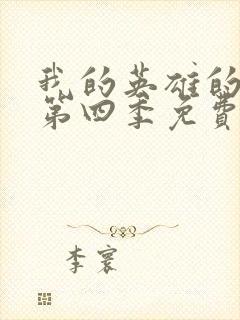 我的英雄的
第四季免费
李寰